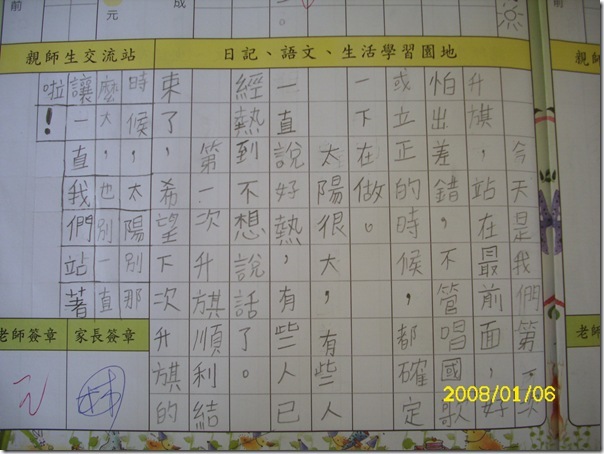 前
元
成
。
日記、語文、生活學習園地
親師生交流站
今天是我們第一次
升旗，站在最前面，好
怕出差錯，不管唱國歌
或立正的時候，都確定
一下在做。
太陽很大，有些人
一直說好熱，有些人已
經熱到不想說話了。
第一次升旗順利結
束了，希望下次升旗的
時候，太陽別那
麼大，也別一直
讓一直我們站著
啦！
家長簽章
老師簽章
2008/01/06